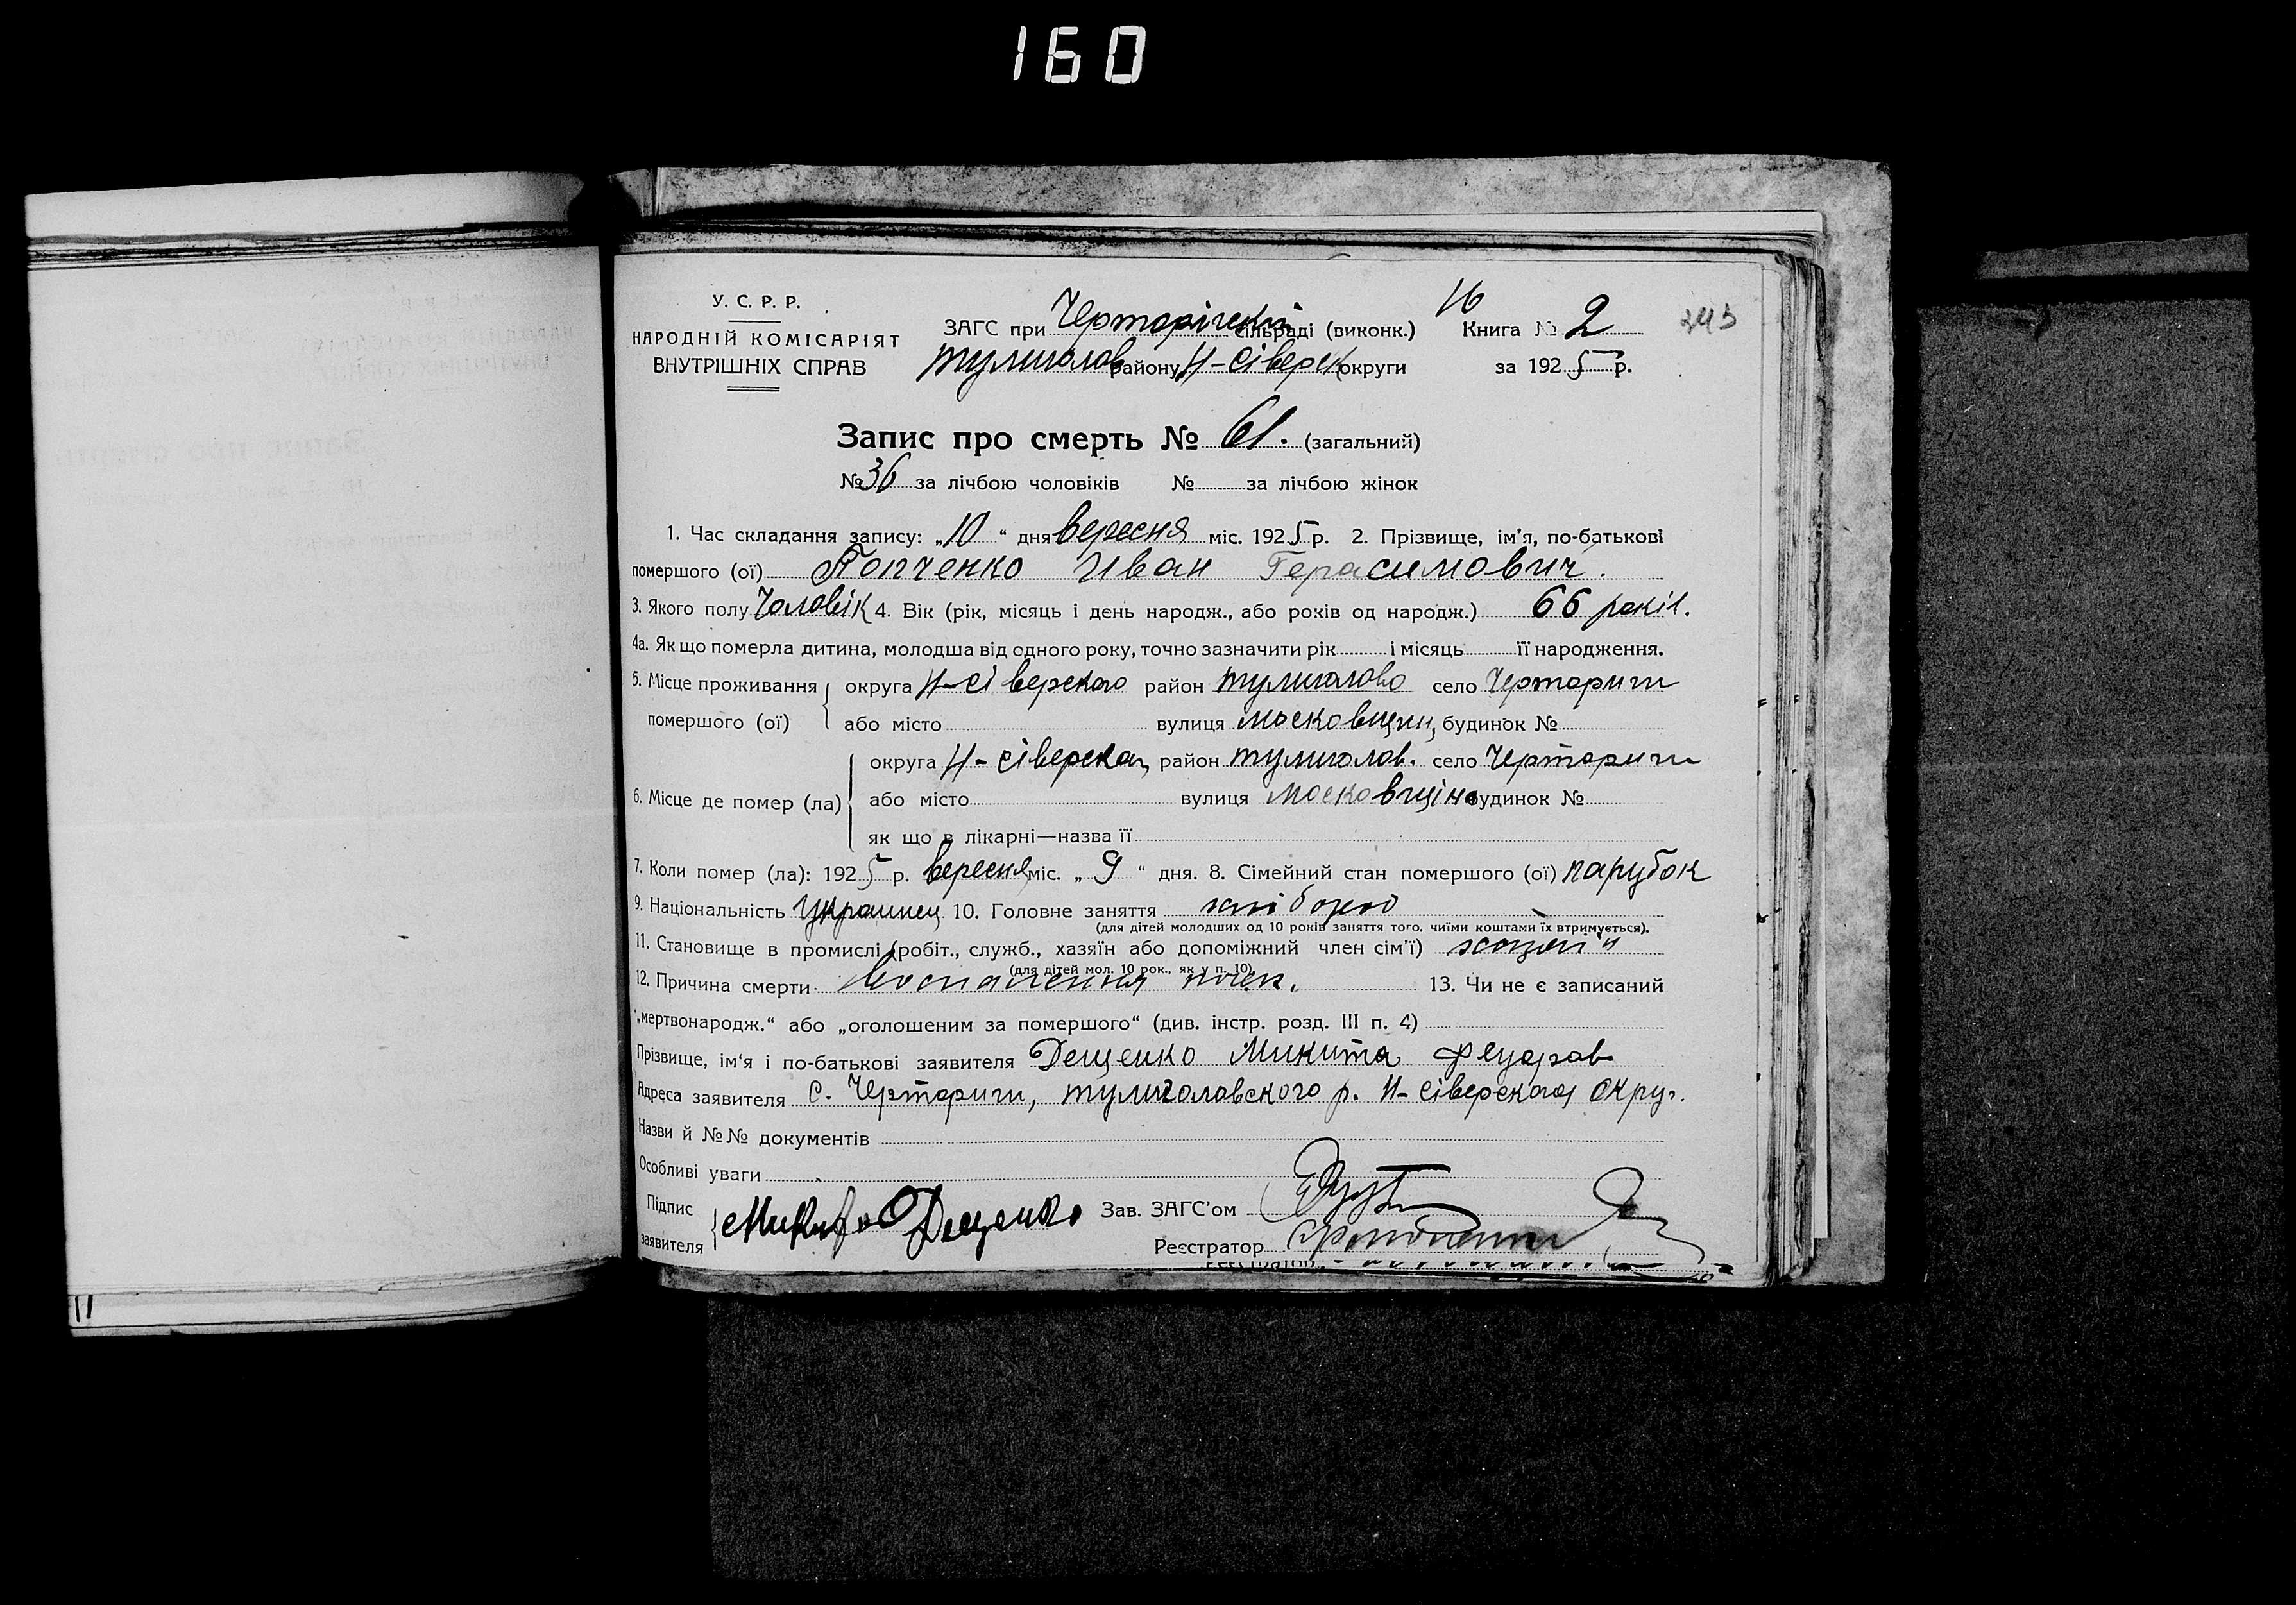 160
У. С. Р. Р.
НАРОДНІЙ КОМІСАРІЯТ
ВНУТРІШНІХ СПРАВ
ЗАГС при Чертарігскій сільраді (виконк.)
тулиголов району Н-сіверск округи
16
Книга № 2
за 1925 р.
243
Запис про смерть № 61. (загальний)
№ 36 за лічбою чоловіків № за лічбою жінок
1. Час складання запису: „10" дня вересня міс. 1925 р. 2. Прізвище, ім'я, по-батькові
помершого (ої) Попченко Иван Герасимович.
3. Якого полу Чоловік 4. Вік (рік, місяць і день народж., або років од народж.) 66 років.
4а. Як що померла дитина, молодша від одного року, точно зазначити рік і місяць її народження.
5. Місце проживання помершого (ої)
округа Н-сіверского район тулиголово село Черториги
або місто вулиця московщин, будинок №
6. Місце де помер (ла)
округа Н-сіверског, район тулиголов. село Черториги
або місто вулиця московщіна будинок №
як що в лікарні—назва її
7. Коли помер (ла): 1925 р. вересня міс. „9" дня. 8. Сімейний стан помершого (ої) парубок
9. Національність Украинец 10. Головне заняття хлібороб
(для дітей молодших од 10 років заняття того, чиїми коштами їх втримується).
11. Становище в промислі (робіт., служб., хазяїн або допоміжний член сім'ї) хозяїн
(для дітей мол. 10 рок., як у п. 10).
12. Причина смерти воспалення почек. 13. Чи не є записаний
„мертвонародж." або „оголошеним за помершого" (див. інстр. розд. III п. 4)
Прізвище, ім'я і по-батькові заявителя Дещенко Микита
Адреса заявителя с. Черториги, тулиголовского р. Н-сіверской округ.
Назви й №№ документів
Особливі уваги
Підпис заявителя Микита Дещенко
Зав. ЗАГС'ом
Реєстратор
Реєстратор